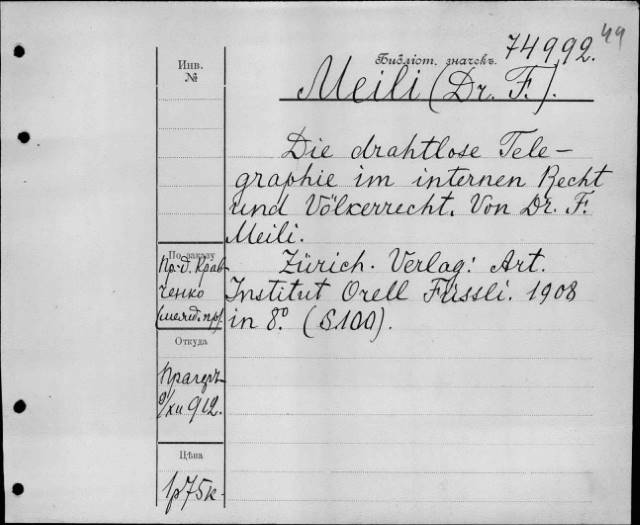 49
74992.
Библіот. значекъ.
Инв.
№
Meili (Dr. F.).
Die drahtlose Tele-
graphie im internen Recht
und Völkerrecht. Von Dr. F.
Meili.
По заказу
Пр.-д. Крав-
ченко
(межд. пр)
Zürich. Verlag: Art.
Institut Orell Füssli. 1908
in 8.° (S.100).
Откуда
Прагеръ
/XII 912.
Цѣна
1р75к.